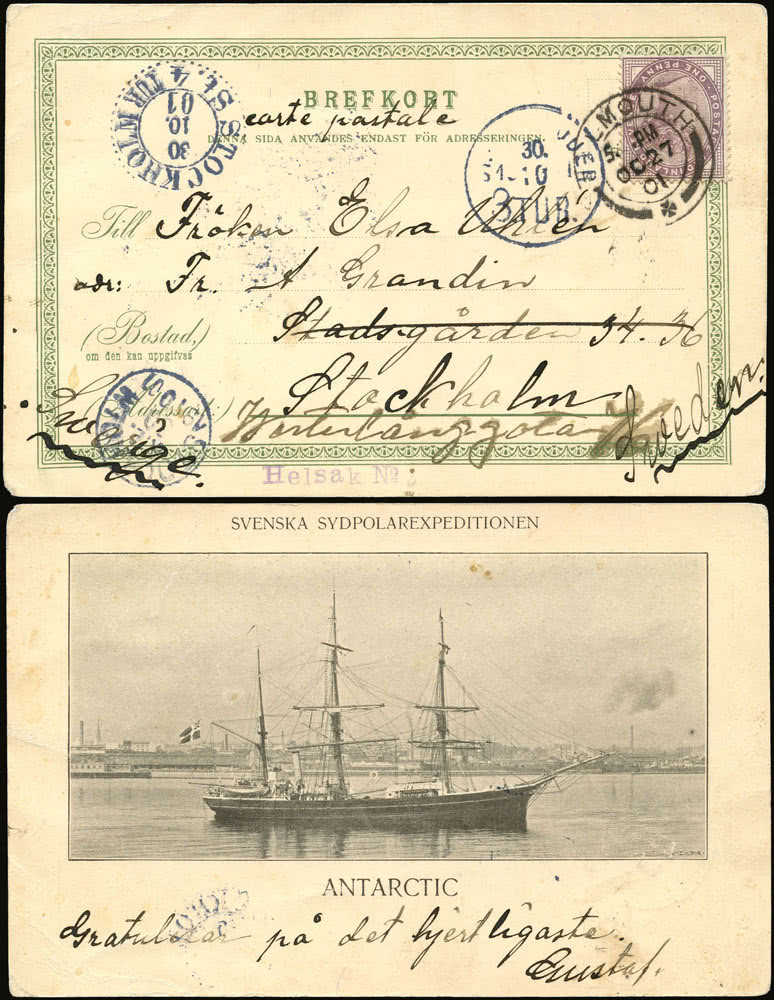 BREFKORT
carte postale
DENNA SIDA ANVÄNDES ENDAST FÖR ADRESSERINGEN.
STOCKHOLM
30
10.
01
ST. 4 TUR
30.
10
3 TUR.
LMOUTH
PM
OC 27
01
POSTAGE
ONE PENNY
Till Fröken Elsa
adr: Fr. A Grandin
(Bostad,)
om den kan uppgifvas
Stadsgården 34. 36
Stockholm
Sverige.
Sweden.
Helsak No
SVENSKA SYDPOLAREXPEDITIONEN
ANTARCTIC
Gratulerar på det hjertligaste.
Gustaf.